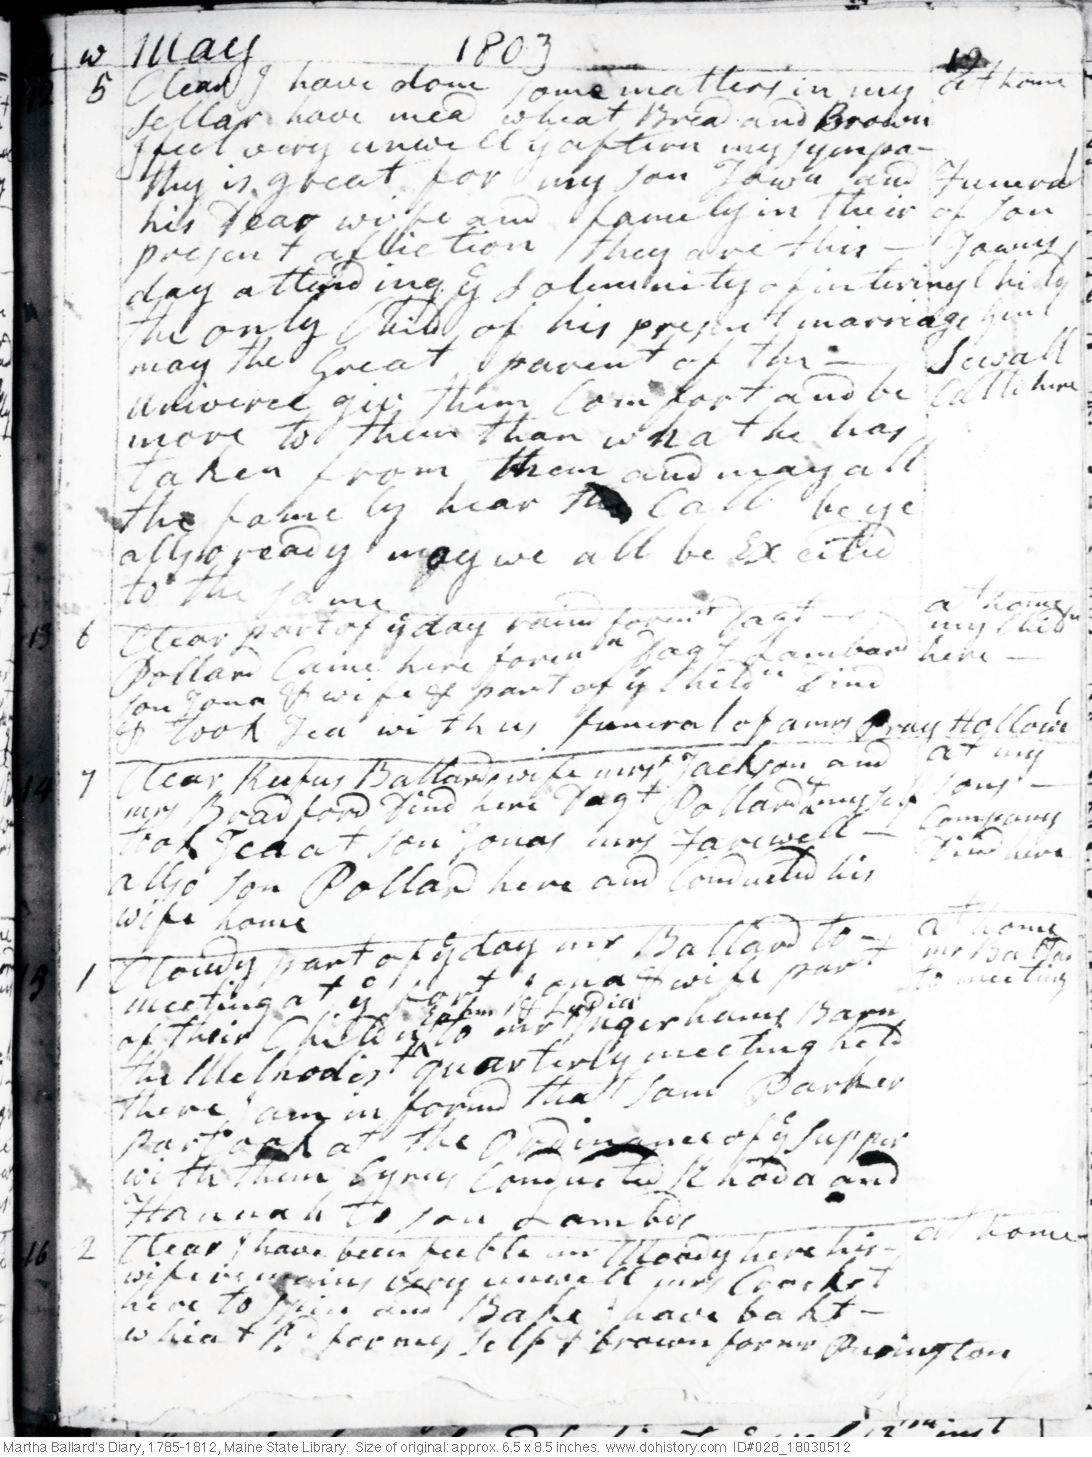 w May 1803 12
12 5 Clear I have done some matters in my at home
sellar have mead wheat Bread and Brown
I feel very unwell ys aftern my sympa-
thy is great for my son Town and Funeral
his Dear wife and famely in their of son
present afliction they are this - Towns
day attending ye Solemnity of intering Child
the only Child of his present marriage Genl
may the Great parent of the - Sewall
univerce giv them Comfort and be Calld here
more to them than what he has
taken from them and may all
the famely hear the Call be ye
allso ready may we all be Excited
to the same
13 6 Clear part of ye day raind foren n Dagt - at home
Pollard Came here foren n Dagt Lambard my Childn
son Jona & wife & part of ye Childn Dind here -
& took Tea with us funeral of a mrs Gray Hollowell
14 7 Clear Rufus Ballards wife mrs Jackson and at my
mrs Bradford Dind here Dagt Pollard & my self sons -
took Tea at son Jonas mrs Farewell - Company
allso son Pollard here and Conducted his Dind here
wife home
15 1 Cloudy part of ye day mr Ballard to - at home
meeting at ye fort Jona & wife part mr Ballard
of their Childn Ephm & Lydia to mr Ingerhams Barn to meeting
the Methodist quarterly meeting held
there I am informd that Saml Parker
partook at the Ordinance of ye Supper
with them Cyrus Conducted Rhoda and
Hannah to son Lambds
16 2 Clear I have been feeble mr Moody here his - at home
wife remains very unwell mrs Crocket
here to spin and Bake I have bakt -
wheat Bd for my self & brown for mr Purington
Martha Ballard's Diary, 1785-1812, Maine State Library. Size of original: approx. 6.5 x 8.5 inches. www.dohistory.com ID#028_18030512